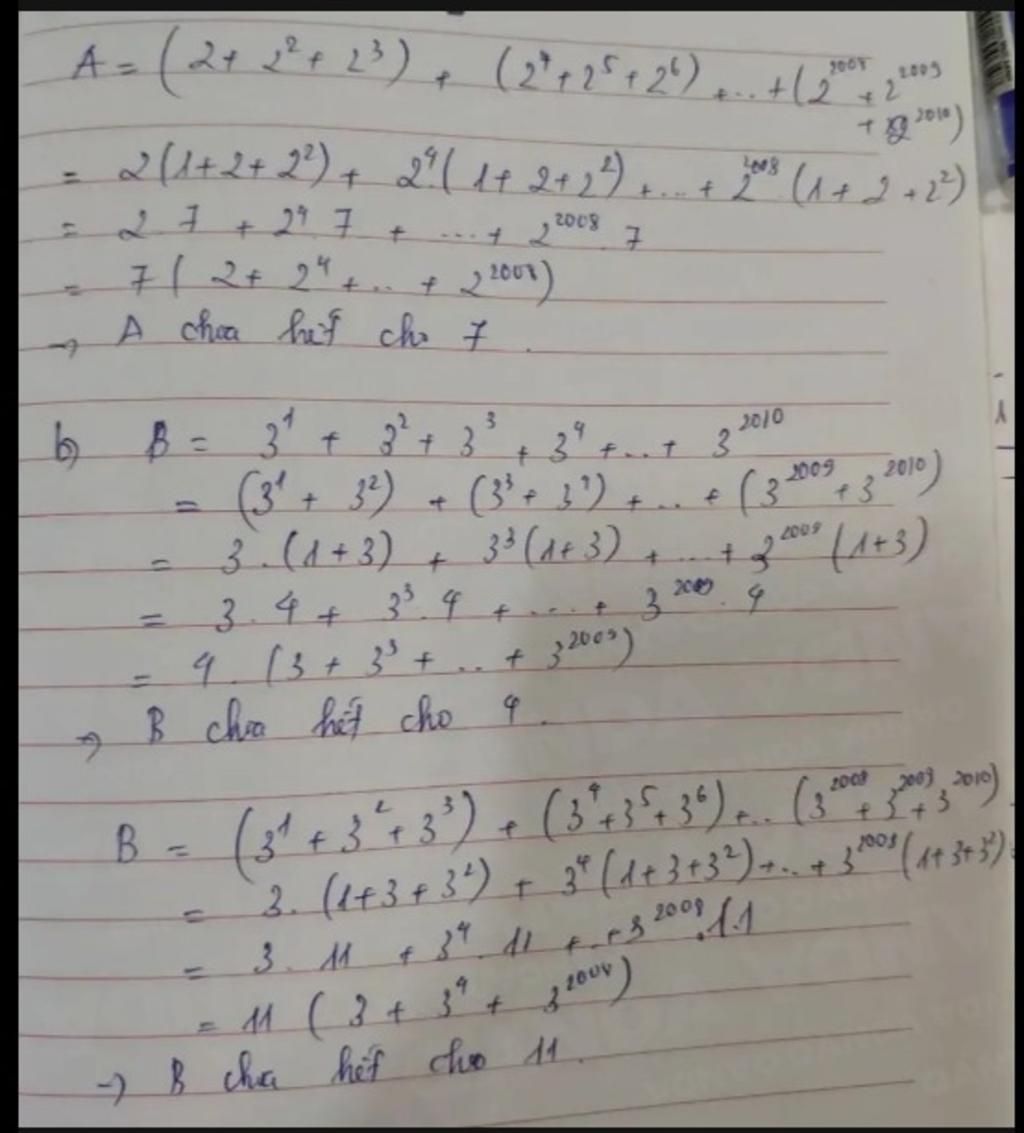 A = (2 + 2² + 2³) + (2⁴ + 2⁵ + 2⁶) + ... + (2²⁰⁰⁸ + 2²⁰⁰⁹
+ 2²⁰¹⁰)
= 2(1 + 2 + 2²) + 2⁴.(1 + 2 + 2²) + ... + 2²⁰⁰⁸.(1 + 2 + 2²)
= 2.7 + 2⁴.7 + ... + 2²⁰⁰⁸.7
= 7(2 + 2⁴ + .. + 2²⁰⁰⁸)
→ A chia hết cho 7.
b) B = 3¹ + 3² + 3³ + 3⁴ + ... + 3²⁰¹⁰
= (3¹ + 3²) + (3³ + 3⁴) + ... + (3²⁰⁰⁹ + 3²⁰¹⁰)
= 3.(1+3) + 3³(1+3) + ... + 3²⁰⁰⁹(1+3)
= 3.4 + 3³.4 + ... + 3²⁰⁰⁹.4
= 4.(3 + 3³ + .. + 3²⁰⁰⁹)
→ B chia hết cho 4.
B = (3¹ + 3² + 3³) + (3⁴ + 3⁵ + 3⁶) + .. (3²⁰⁰⁸ + 3²⁰⁰⁹ + 3²⁰¹⁰)
= 3.(1+3+3²) + 3⁴(1+3+3²) + .. + 3²⁰⁰⁸(1+3+3²)
= 3.11 + 3⁴.11 + .. + 3²⁰⁰⁸.11
= 11(3 + 3⁴ + 3²⁰⁰⁸)
→ B chia hết cho 11.